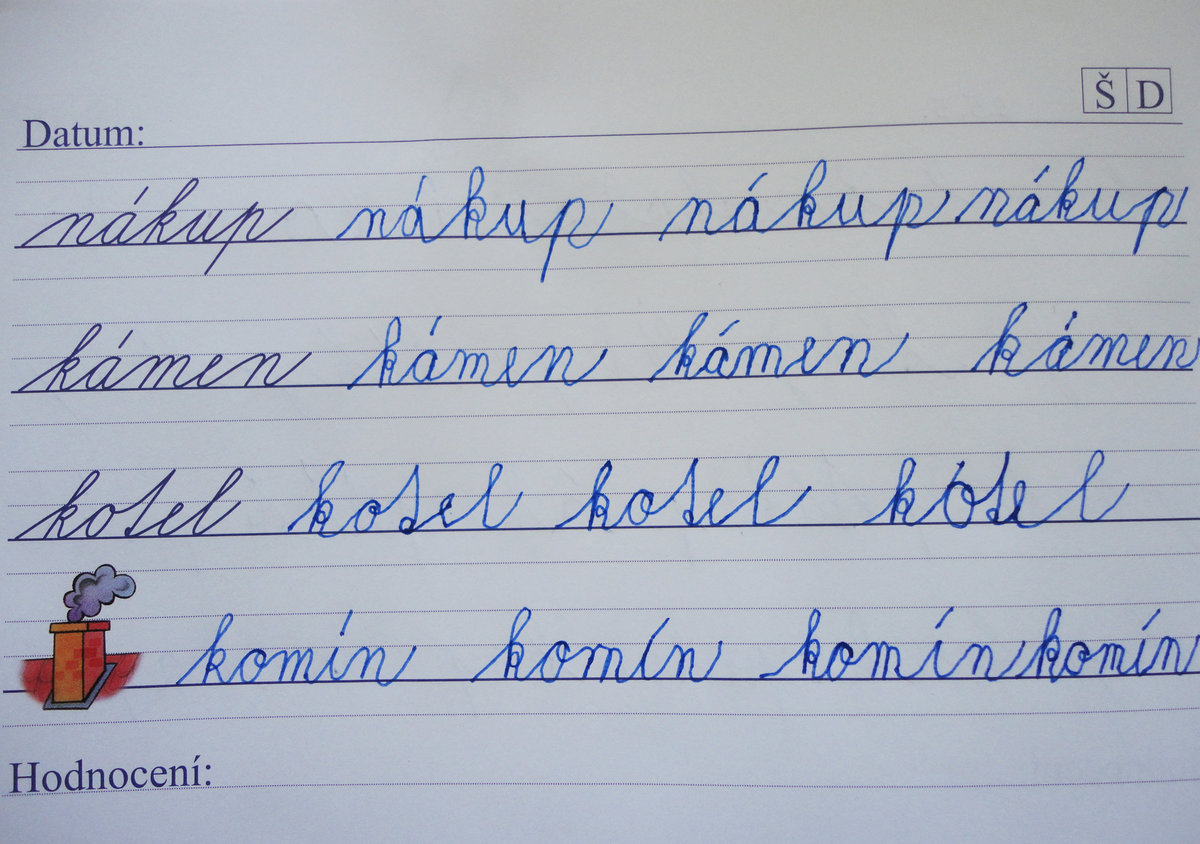 Š D
Datum:
nákup nákup nákup nákup
kámen kámen kámen kámen
kotel kotel kotel kotel
komín komín komín komín
Hodnocení: